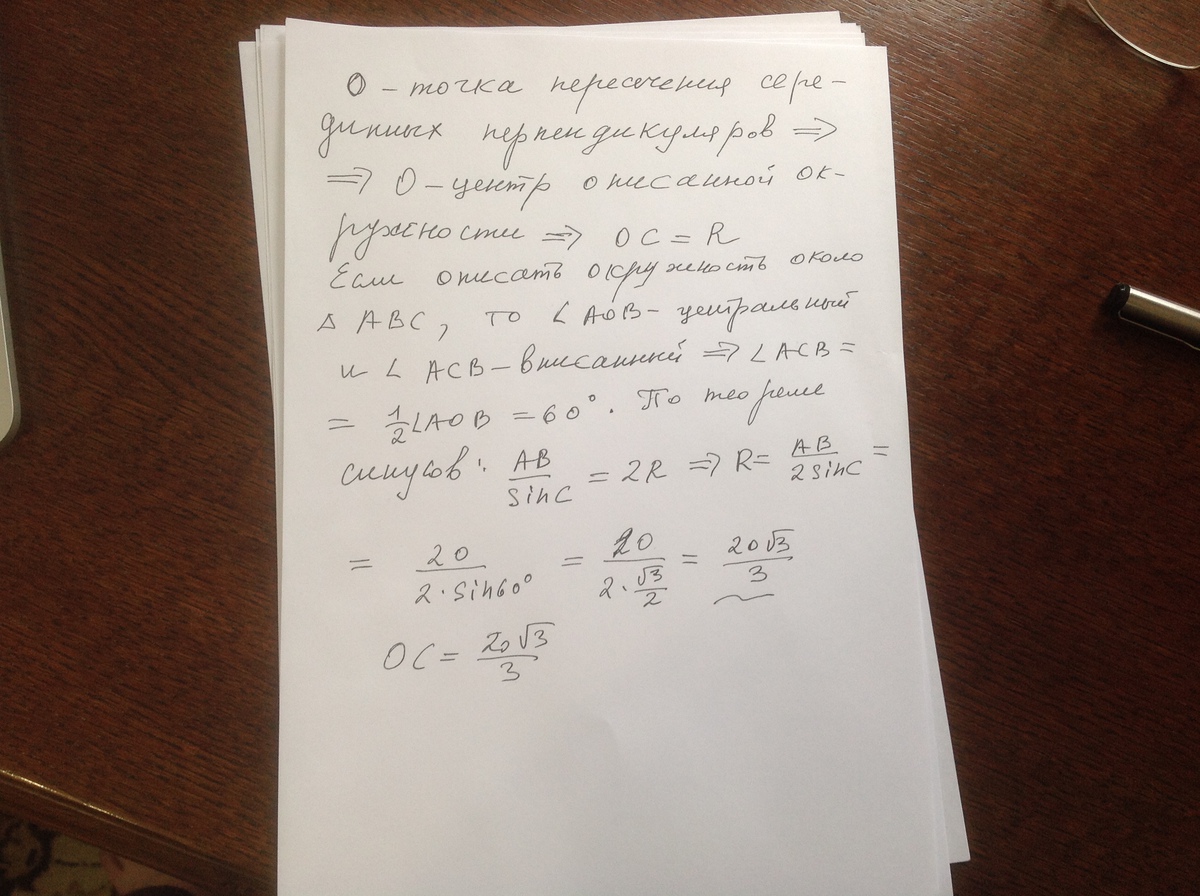 O – точка пересечения сере-
динных перпендикуляров ⇒
⇒ O – центр описанной ок-
ружности ⇒ OC = R
Если описать окружность около
△ ABC, то ∠ AOB – центральный
и ∠ ACB – вписанный ⇒ ∠ ACB =
= 1/2 ∠AOB = 60°. По теореме
синусов: AB/sinC = 2R ⇒ R = AB/2sinC =
= 20/2·sin60° = 20/2·√3/2 = 20√3/3
OC = 20√3/3